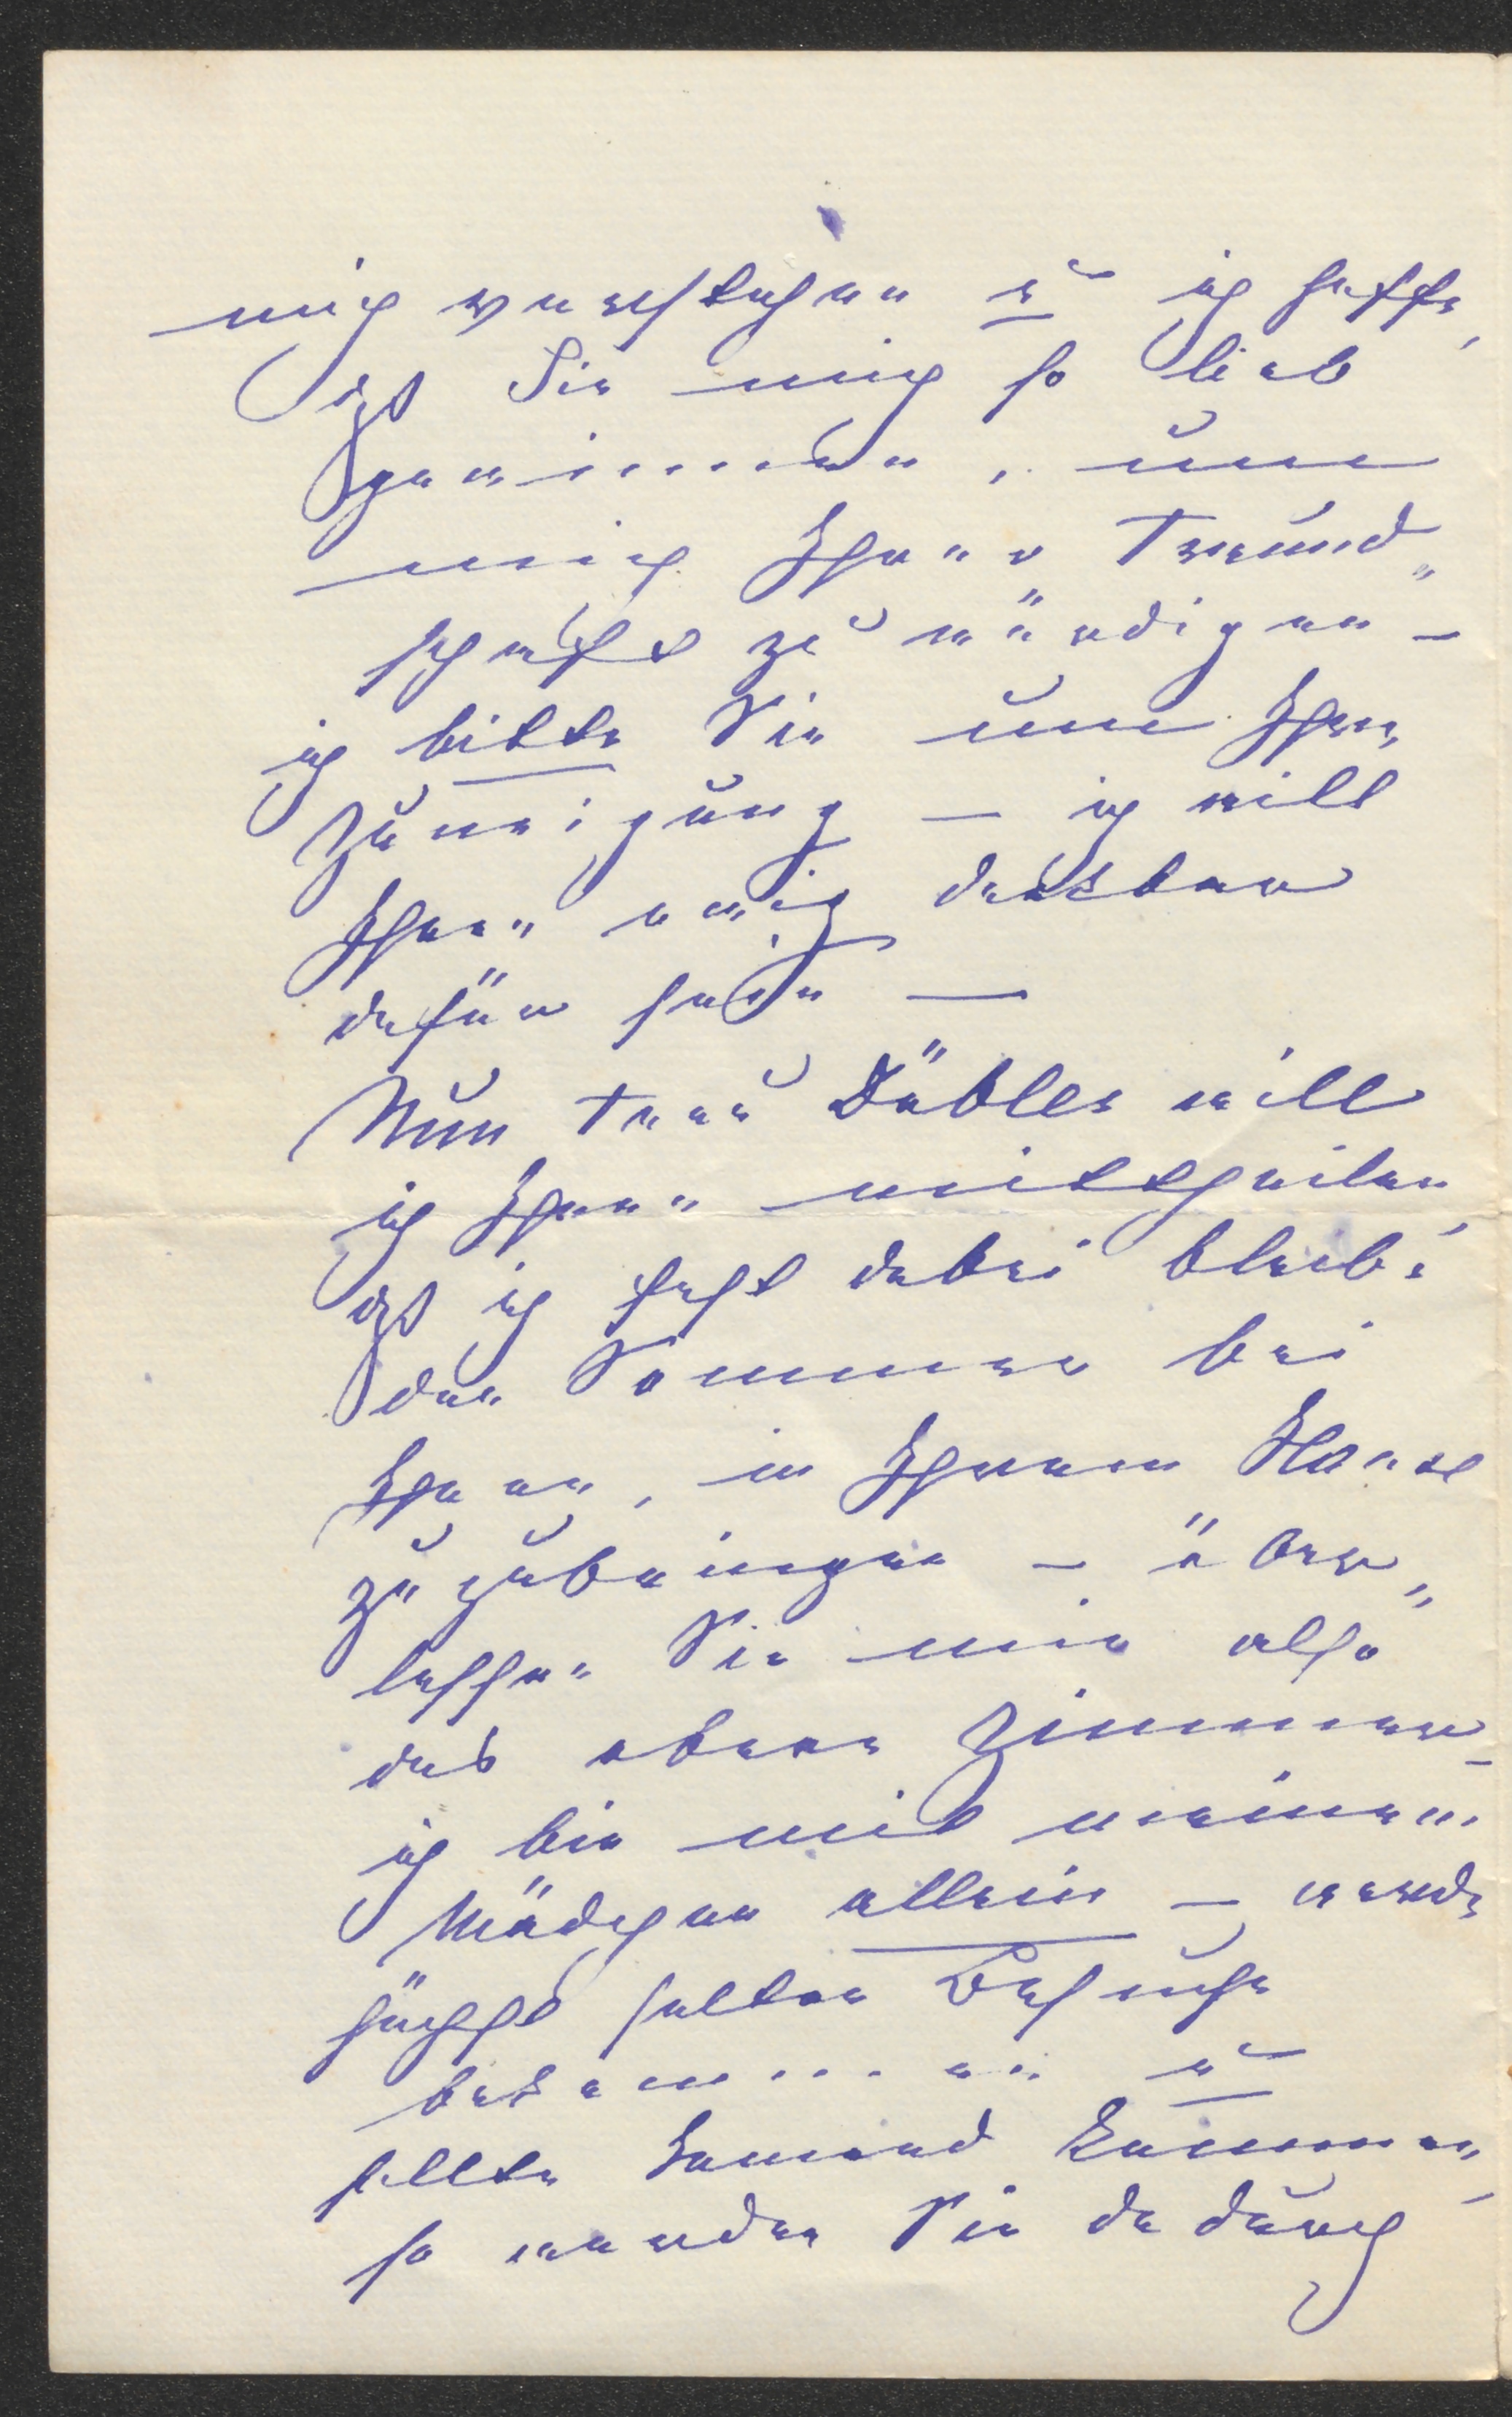 mich verstehen u ich hoffe,
daß Sie mich so lieb
gewinnen, um
mich Ihrer Freund„
schaft zu würdigen –
ich bitte Sie um Ihre
Zuneigung – ich will
Ihnen ewig dankbar
dafür sein —
Nun Frau Däbler will
ich Ihnen mittheilen,
daß ich fest dabei bleibe
den Sommer bei
Ihnen, in Ihrem Hause
zuzubringen – über„
lassen Sie mir also
das obere Zimmer –
ich bin mit meinem
Mädchen allein – werde
höchst selten Besuche
bekommen u
sollte Jemand kommen,
so werden Sie dadurch